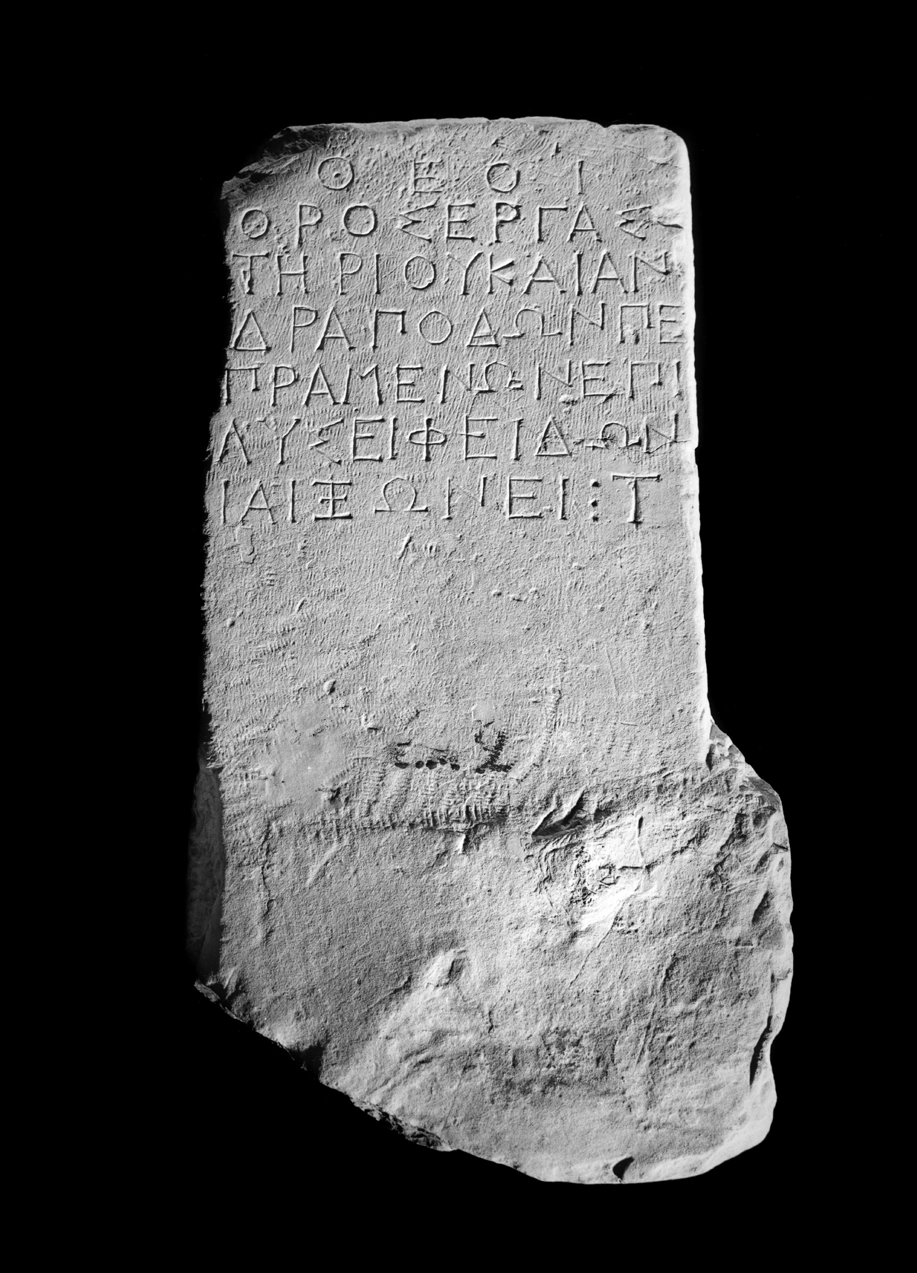 ΘΕΟΙ
ΟΡΟΣΕΡΓΑΣ
ΤΗΡΙΟΥΚΑΙΑΝ
ΔΡΑΠΟΔΩΝΠΕ
ΠΡΑΜΕΝΩΝΕΠΙ
ΛΥΣΕΙΦΕΙΔΩΝ
ΙΑΙΞΩΝΕΙ⋮Τ